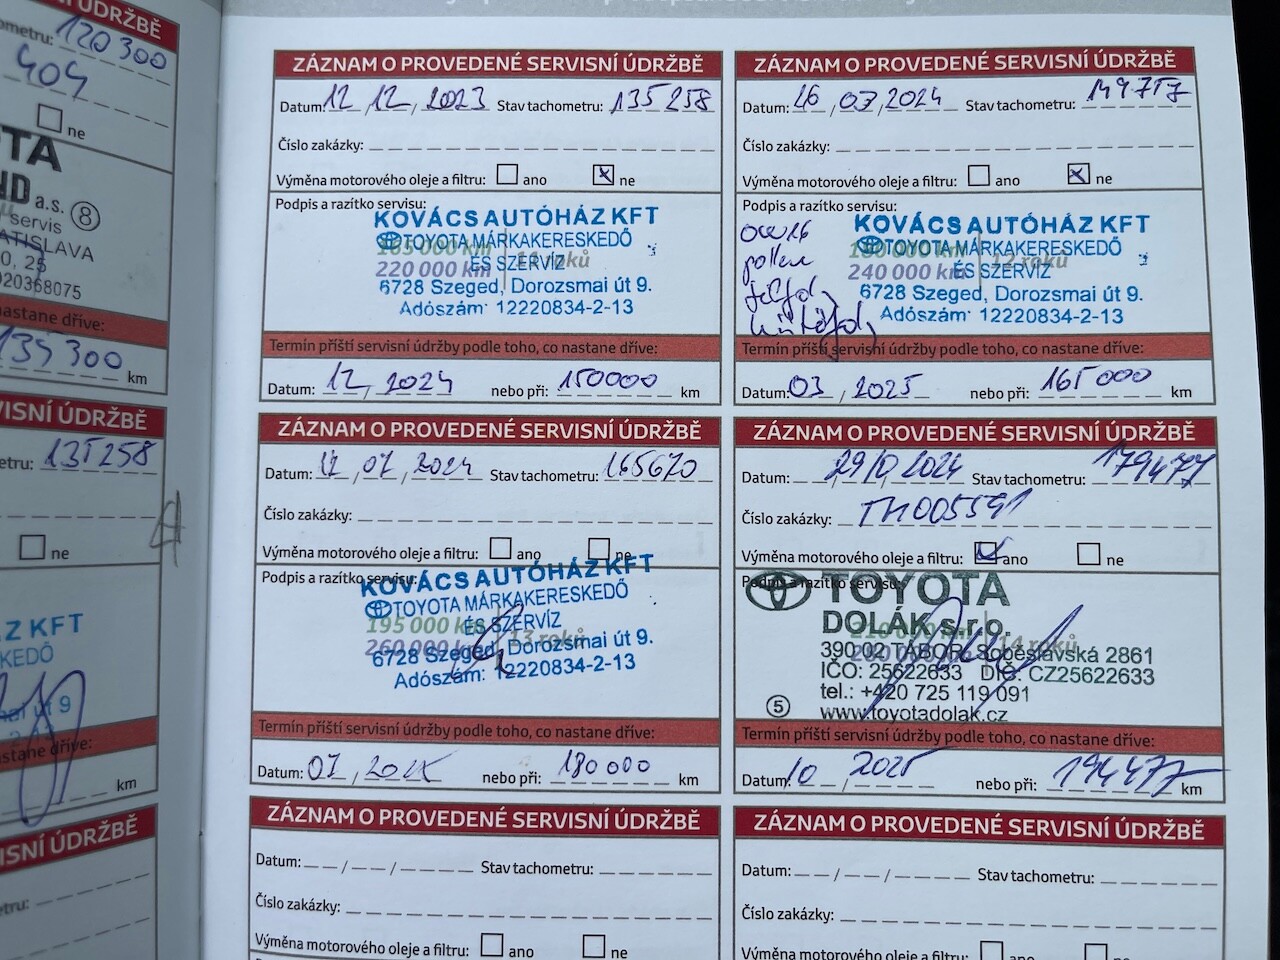 ÚDRŽBĚ
metru: 120 300
404
ne
TOYOTA
ND a.s. 8
servis
ATISLAVA
0, 25
020368075
nastane dříve:
135 300 km
VISNÍ ÚDRŽBĚ
etru: 135258
ne
ÁZ KFT
SKEDŐ
mai út 9
nastane dříve:
km
ISNÍ ÚDRŽBĚ
etru:
ZÁZNAM O PROVEDENÉ SERVISNÍ ÚDRŽBĚ
Datum: 12, 12, 2023 Stav tachometru: 135258
Číslo zakázky:
Výměna motorového oleje a filtru: ano ne
Podpis a razítko servisu:
KOVÁCS AUTÓHÁZ KFT
TOYOTA MÁRKAKERESKEDŐ
165 000 km
ÉS SZERVÍZ
220 000 km 11 roků
6728 Szeged, Dorozsmai út 9.
Adószám: 12220834-2-13
Termín příští servisní údržby podle toho, co nastane dříve:
Datum: 12, 2024 nebo při: 150000 km
ZÁZNAM O PROVEDENÉ SERVISNÍ ÚDRŽBĚ
Datum: 26, 03, 2024 Stav tachometru: 149757
Číslo zakázky:
Výměna motorového oleje a filtru: ano ne
Podpis a razítko servisu:
KOVÁCS AUTÓHÁZ KFT
TOYOTA MÁRKAKERESKEDŐ
180 000 km
ÉS SZERVÍZ
240 000 km 12 roků
6728 Szeged, Dorozsmai út 9.
Adószám: 12220834-2-13
pollen
Termín příští servisní údržby podle toho, co nastane dříve:
Datum: 03, 2025 nebo při: 165 000 km
ZÁZNAM O PROVEDENÉ SERVISNÍ ÚDRŽBĚ
Datum: 07, 2024 Stav tachometru: 165670
Číslo zakázky:
Výměna motorového oleje a filtru: ano ne
Podpis a razítko servisu:
KOVÁCS AUTÓHÁZ KFT
TOYOTA MÁRKAKERESKEDŐ
195 000 km
ÉS SZERVÍZ
260 000 km 13 roků
6728 Szeged, Dorozsmai út 9.
Adószám: 12220834-2-13
Termín příští servisní údržby podle toho, co nastane dříve:
Datum: 07, 2025 nebo při: 180 000 km
ZÁZNAM O PROVEDENÉ SERVISNÍ ÚDRŽBĚ
Datum: 29/10/2024 Stav tachometru: 179477
Číslo zakázky: TM005591
Výměna motorového oleje a filtru: ano ne
Podpis a razítko servisu:
TOYOTA
DOLÁK s.r.o.
210 000 km 14 roků
390 02 TÁBOR, Soběslavská 2861
IČO: 25622633 DIČ: CZ25622633
tel.: +420 725 119 091
www.toyotadolak.cz
5
Termín příští servisní údržby podle toho, co nastane dříve:
Datum: 10 2025 nebo při: 194477 km
ZÁZNAM O PROVEDENÉ SERVISNÍ ÚDRŽBĚ
Datum: / / Stav tachometru:
Číslo zakázky:
Výměna motorového oleje a filtru: ano ne
ZÁZNAM O PROVEDENÉ SERVISNÍ ÚDRŽBĚ
Datum: / / Stav tachometru:
Číslo zakázky:
Výměna motorového oleje a filtru: ano ne